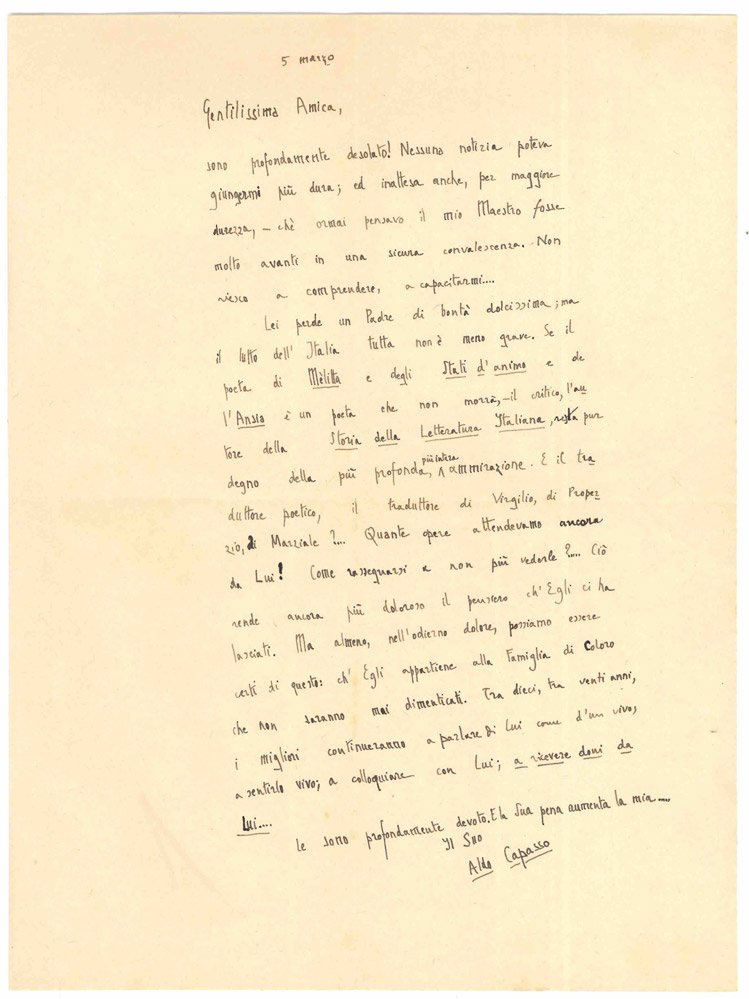 5 marzo
Gentilissima Amica,
sono profondamente desolato! Nessuna notizia poteva
giungermi più dura; ed inattesa anche, per maggiore
durezza, – chè ormai pensavo il mio Maestro fosse
molto avanti in una sicura convalescenza. Non
riesco a comprendere, a capacitarmi....
Lei perde un Padre di bontà dolcissima; ma
il lutto dell'Italia tutta non è meno grave. Se il
poeta di Mèlitta e degli Stati d'animo e de
l'Ansia è un poeta che non morrà, – il critico, l'au
tore della Storia della Letteratura Italiana, resta pur
degno della più profonda, più intera ammirazione. E il tra
duttore poetico, il traduttore di Virgilio, di Proper
zio, di Marziale?... Quante opere attendevamo ancora
da Lui! Come rassegnarsi a non più vederle?.... Ciò
rende ancora più doloroso il pensiero ch'Egli ci ha
lasciati. Ma almeno, nell'odierno dolore, possiamo essere
certi di questo: ch'Egli appartiene alla Famiglia di Coloro
che non saranno mai dimenticati. Tra dieci, tra venti anni,
i migliori continueranno a parlare di Lui come d'un vivo,
a sentirlo vivo; a colloquiare con Lui; a ricevere doni da
Lui....
Le sono profondamente devoto. E la Sua pena aumenta la mia....
Il Suo
Aldo Capasso